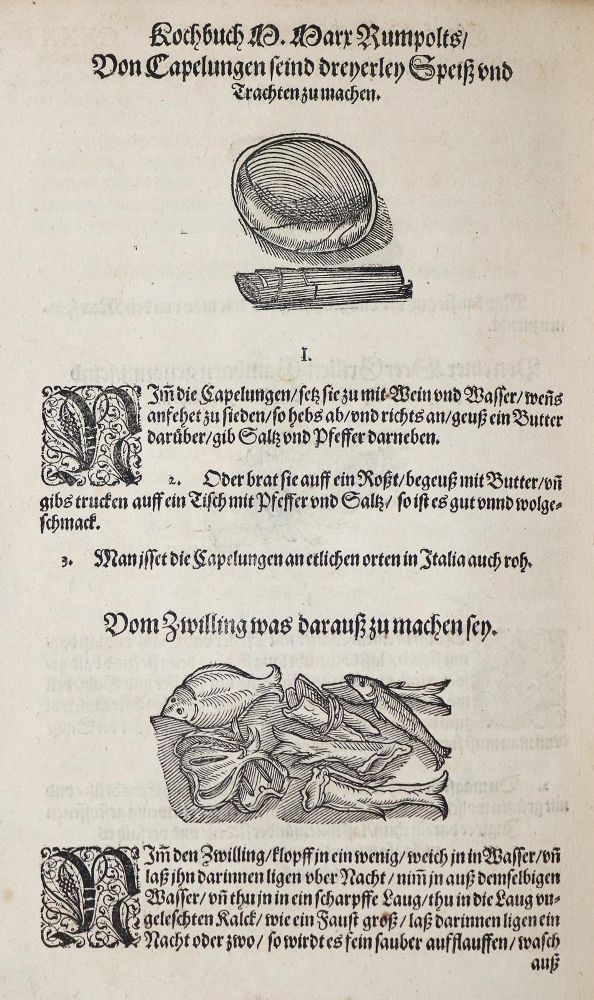 Kochbuch M. Marx Rumpolts/
Von Capelungen seind dreyerley Speiß vnd
Trachten zu machen.
I.
NIm̃ die Capelungen/ setz sie zu mit Wein vnd Wasser/ weñs
anfehet zu sieden/ so hebs ab/ vnd richts an/ geuß ein Butter
darüber/ gib Saltz vnd Pfeffer darneben.
2. Oder brat sie auff ein Roßt/ begeuß mit Butter/ vñ
gibs trucken auff ein Tisch mit Pfeffer vnd Saltz/ so ist es gut vnnd wolge-
schmack.
3. Man jsset die Capelungen an etlichen orten in Italia auch roh.
Vom Zwilling was darauß zu machen sey.
NIm̃ den Zwilling/ klopff jn ein wenig/ weich jn in Wasser/ vñ
laß jhn darinnen ligen vber Nacht/ nim̃ jn auß demselbigen
Wasser/ vñ thu jn in ein scharpffe Laug/ thu in die Laug vn-
geleschten Kalck/ wie ein Faust groß/ laß darinnen ligen ein
Nacht oder zwo/ so wirdt es fein sauber aufflauffen/ wasch
auß